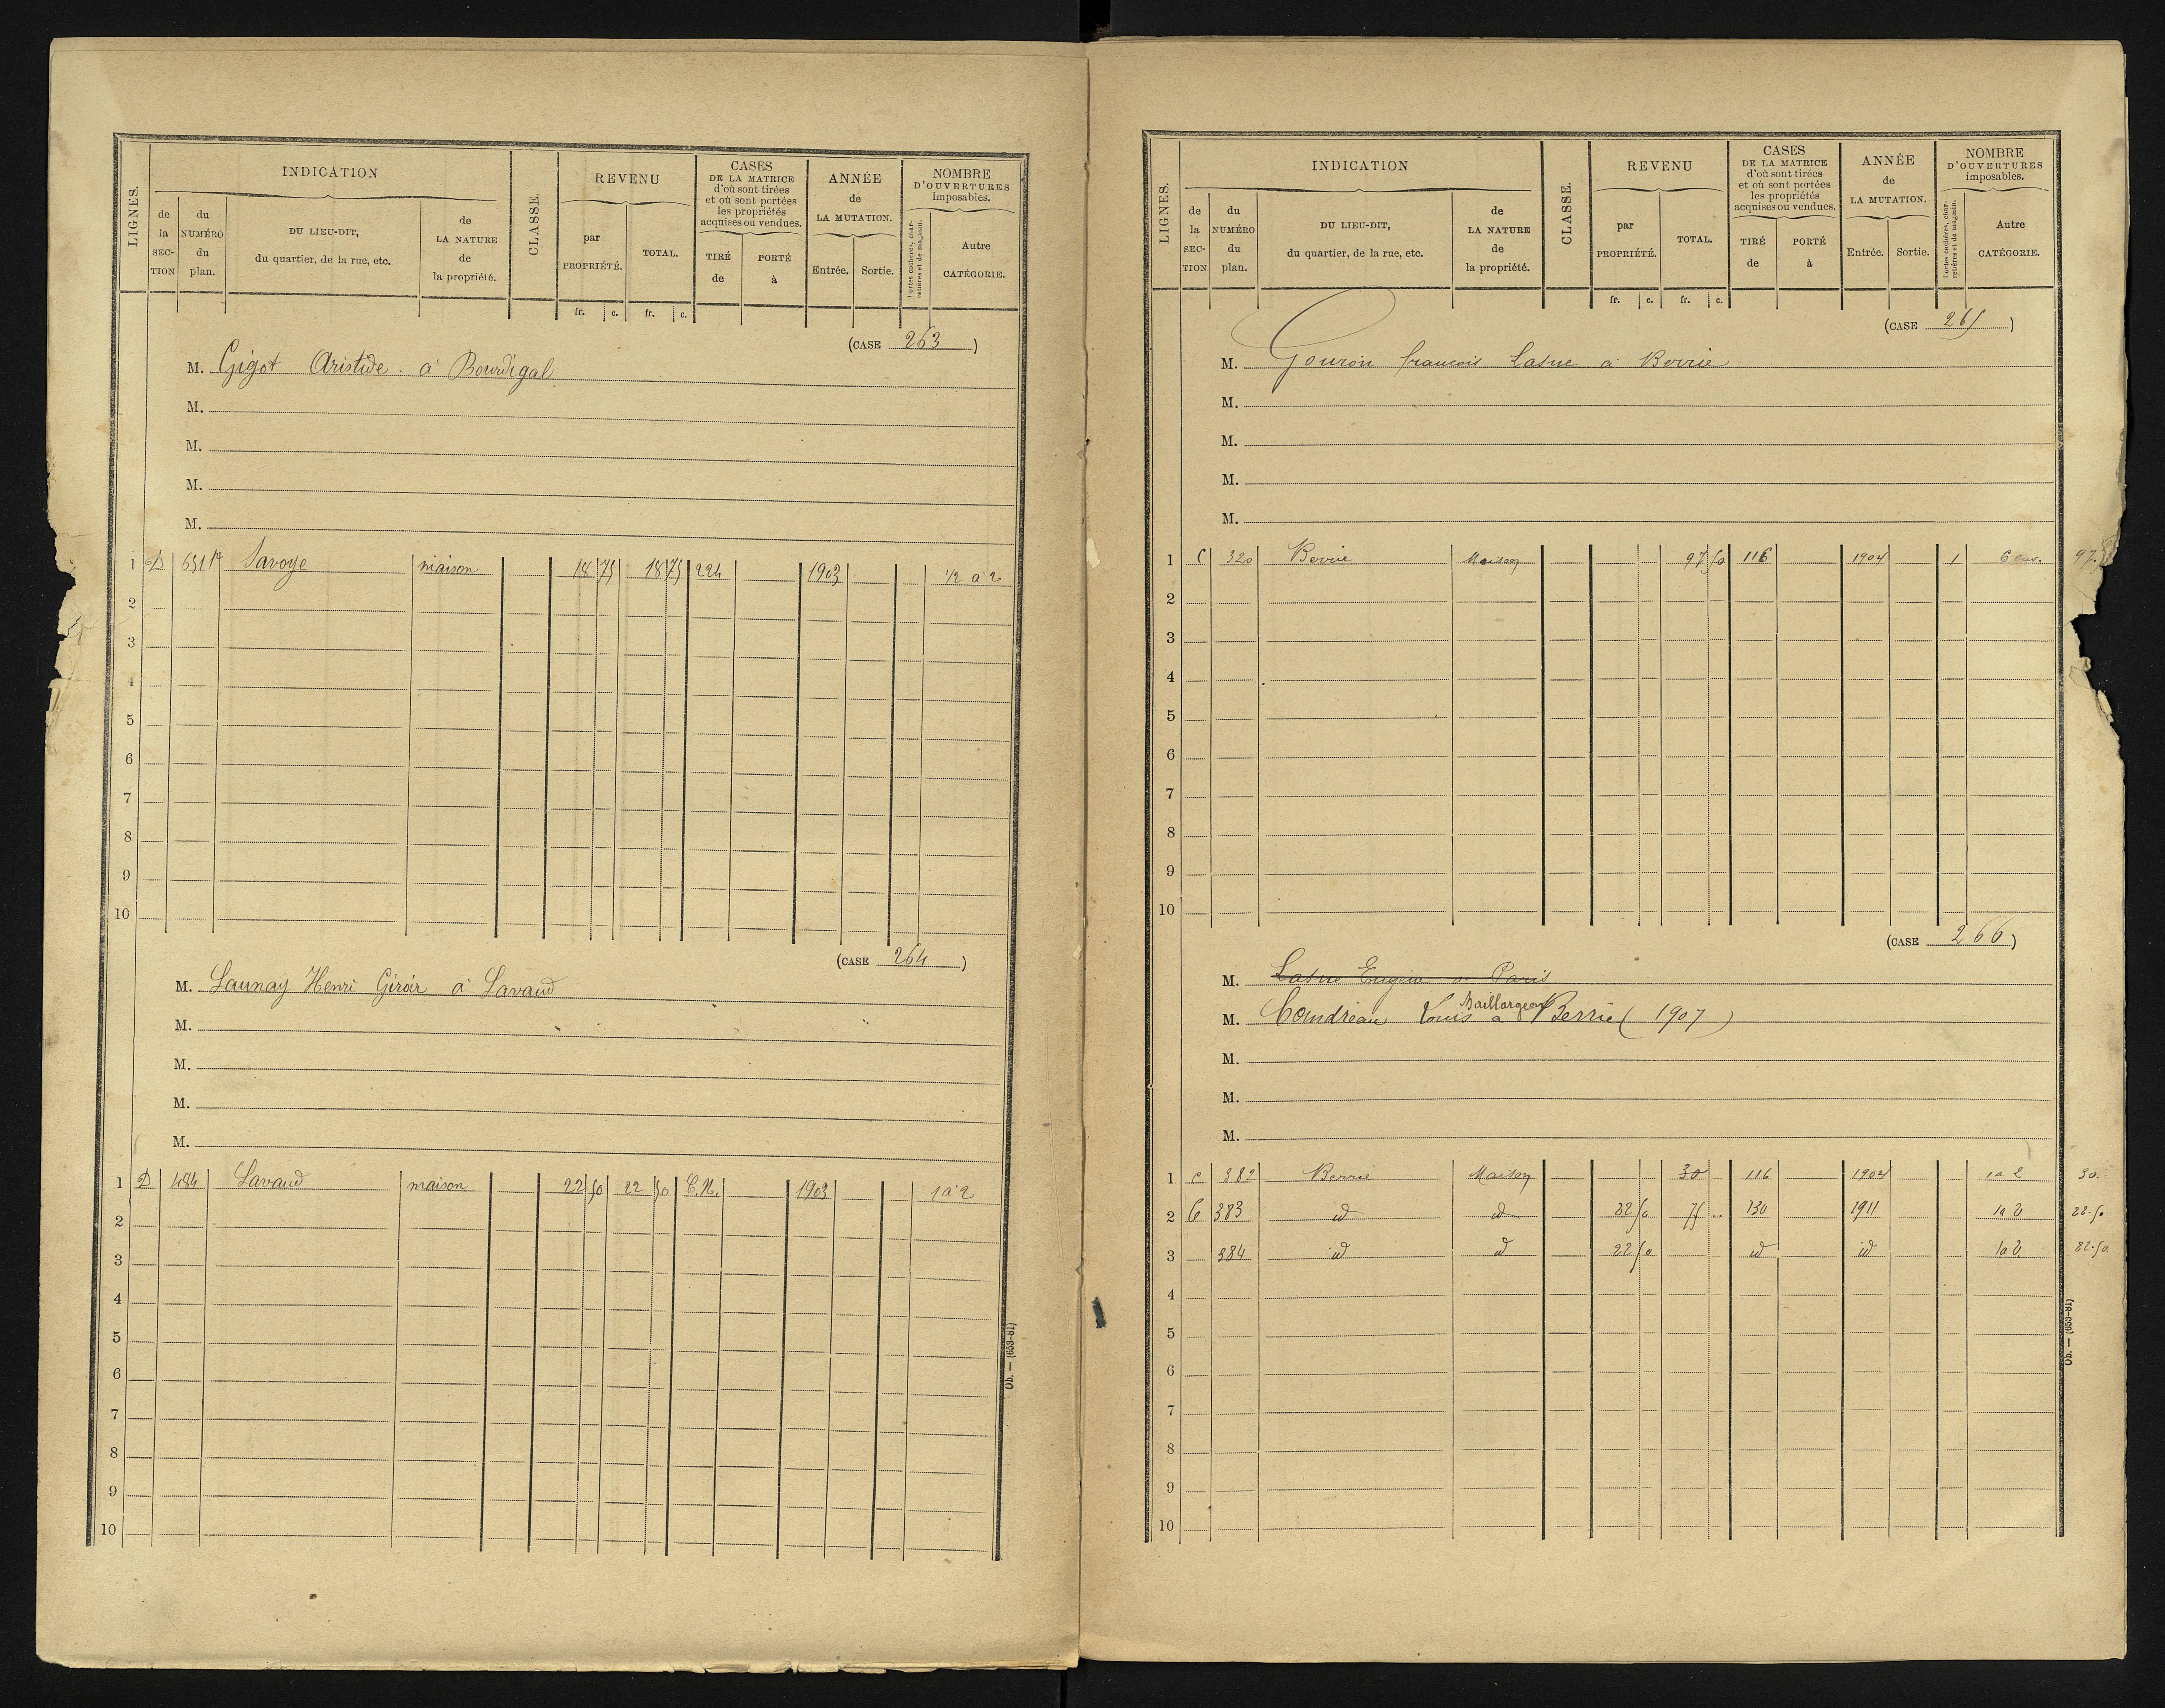 LIGNES.
INDICATION
de la SECTION
du NUMÉRO du plan.
DU LIEU-DIT, du quartier, de la rue, etc.
de LA NATURE de la propriété.
CLASSE.
REVENU
par PROPRIÉTÉ.
TOTAL.
CASES DE LA MATRICE d'où sont tirées et où sont portées les propriétés acquises ou vendues.
TIRÉ de
PORTÉ à
ANNÉE de LA MUTATION.
Entrée.
Sortie.
NOMBRE D'OUVERTURES imposables.
Portes cochères, charretières et de magasin.
Autre CATÉGORIE.
fr. c. fr. c.
(CASE 263)
M. Gigot Aristide à Bourdigal
M.
M.
M.
M.
1 D 651 Savoye maison 18 75 18 75 224 1903 1/2 a 2
2
3
4
5
6
7
8
9
10
(CASE 264)
M. Launay Henri Giroir à Lavaud
M.
M.
M.
M.
1 D 484 Lavaud maison 22 50 22 50 C.N. 1903 1 a 2
2
3
4
5
6
7
8
9
10
Ob. — (653-81)
LIGNES.
INDICATION
de la SECTION
du NUMÉRO du plan.
DU LIEU-DIT, du quartier, de la rue, etc.
de LA NATURE de la propriété.
CLASSE.
REVENU
par PROPRIÉTÉ.
TOTAL.
CASES DE LA MATRICE d'où sont tirées et où sont portées les propriétés acquises ou vendues.
TIRÉ de
PORTÉ à
ANNÉE de LA MUTATION.
Entrée.
Sortie.
NOMBRE D'OUVERTURES imposables.
Portes cochères, charretières et de magasin.
Autre CATÉGORIE.
fr. c. fr. c.
(CASE 265)
M. Gouron francois Lasne à Berrie
M.
M.
M.
M.
1 C 320 Berrie Maison 97 50 116 1904 1 6 ouv. 97.
2
3
4
5
6
7
8
9
10
(CASE 266)
M. Lasne Eugène à Paris
Baillargeon
M. Coudreau Louis à Berrie (1907)
M.
M.
M.
1 C 382 Berrie Maison 30 116 1904 1 a 2 30.
2 C 383 id id 22 50 75 130 1911 1 a 2 22.50
3 384 id id 22 50 id id 1 a 2 22.50
4
5
6
7
8
9
10
Ob. — (653-81)